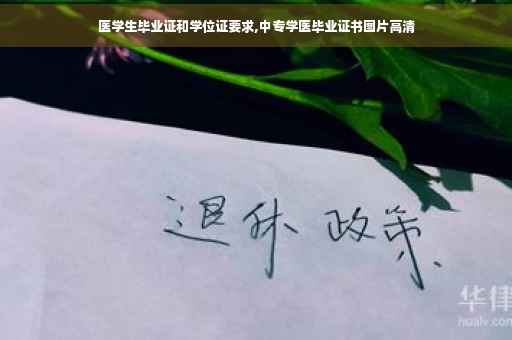 医学生毕业证和学位证要求,中专学医毕业证书图片高清
退休 政策
华律
hualv.com